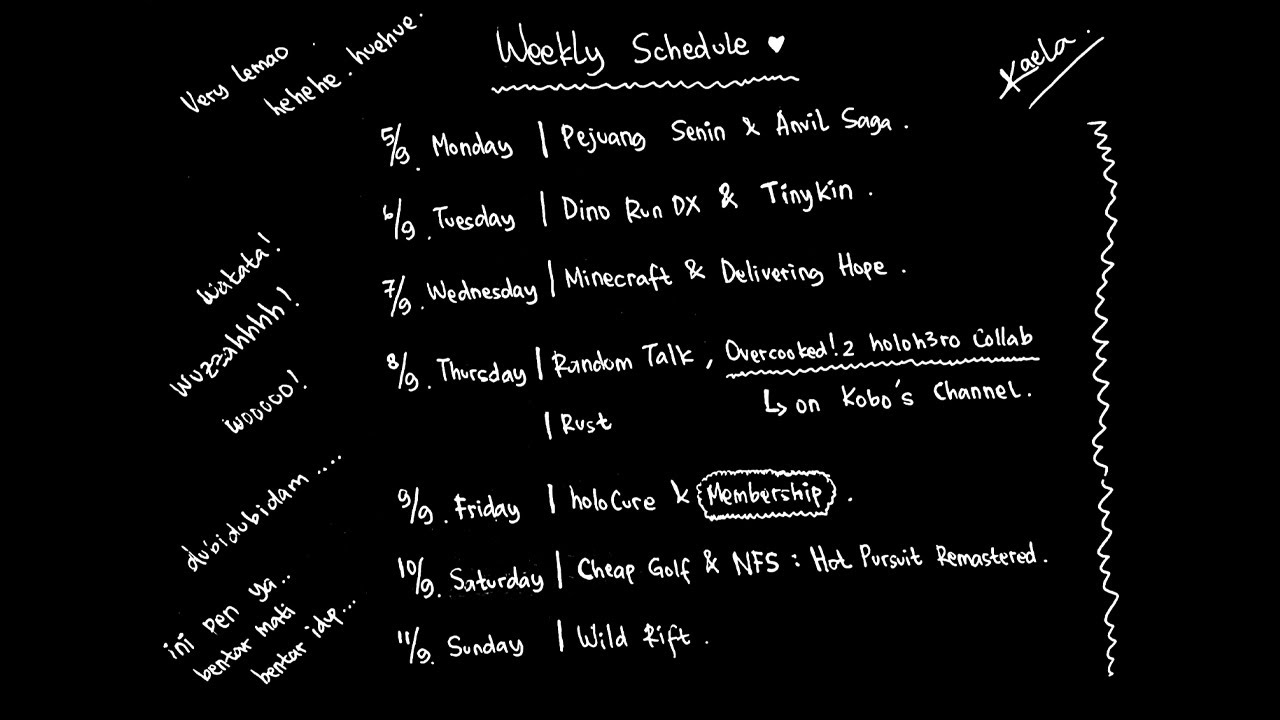 Very lemao .
hehehe . huehue .
Weekly Schedule ♥
Kaela .
5/9. Monday | Pejuang Senin & Anvil Saga .
6/9. Tuesday | Dino Run DX & Tinykin .
7/9. Wednesday | Minecraft & Delivering Hope .
8/9. Thursday | Random Talk , Overcooked! 2 holoh3ro Collab
↳ on Kobo's Channel .
| Rust
9/9. Friday | holoCure & Membership .
10/9. Saturday | Cheap Golf & NFS : Hot Pursuit Remastered .
11/9. Sunday | Wild Rift .
Watata!
Wuzzahhhh!
Wooooo!
dubidubidam .....
ini pen ya..
bentar mati
bentar idup...